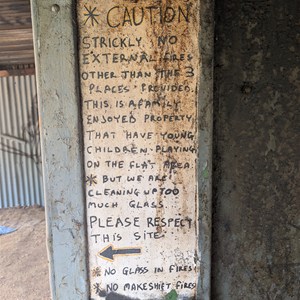 * CAUTION
STRICKLY NO
EXTERNAL FIRES
OTHER THAN THE 3
PLACES PROVIDED.
THIS IS A FAMILY
ENJOYED PROPERTY
THAT HAVE YOUNG
CHILDREN PLAYING
ON THE FLAT AREA.
* BUT WE ARE
CLEANING UP TOO
MUCH GLASS.
PLEASE RESPECT
THIS SITE
* NO GLASS IN FIRES!
* NO MAKESHIFT FIRES!